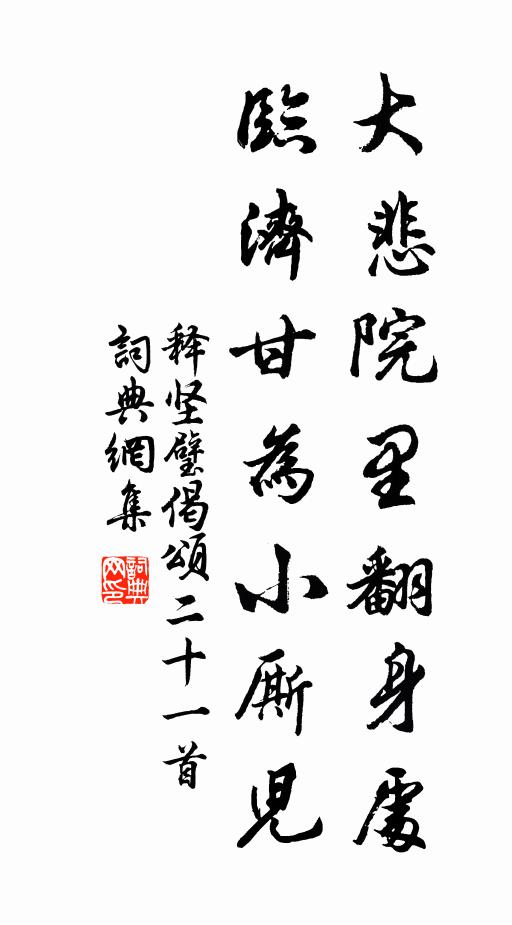 大悲院里翻身處
臨濟甘為小厮兒
释坚璧偈頌二十一首
詞典網集
詞典網印